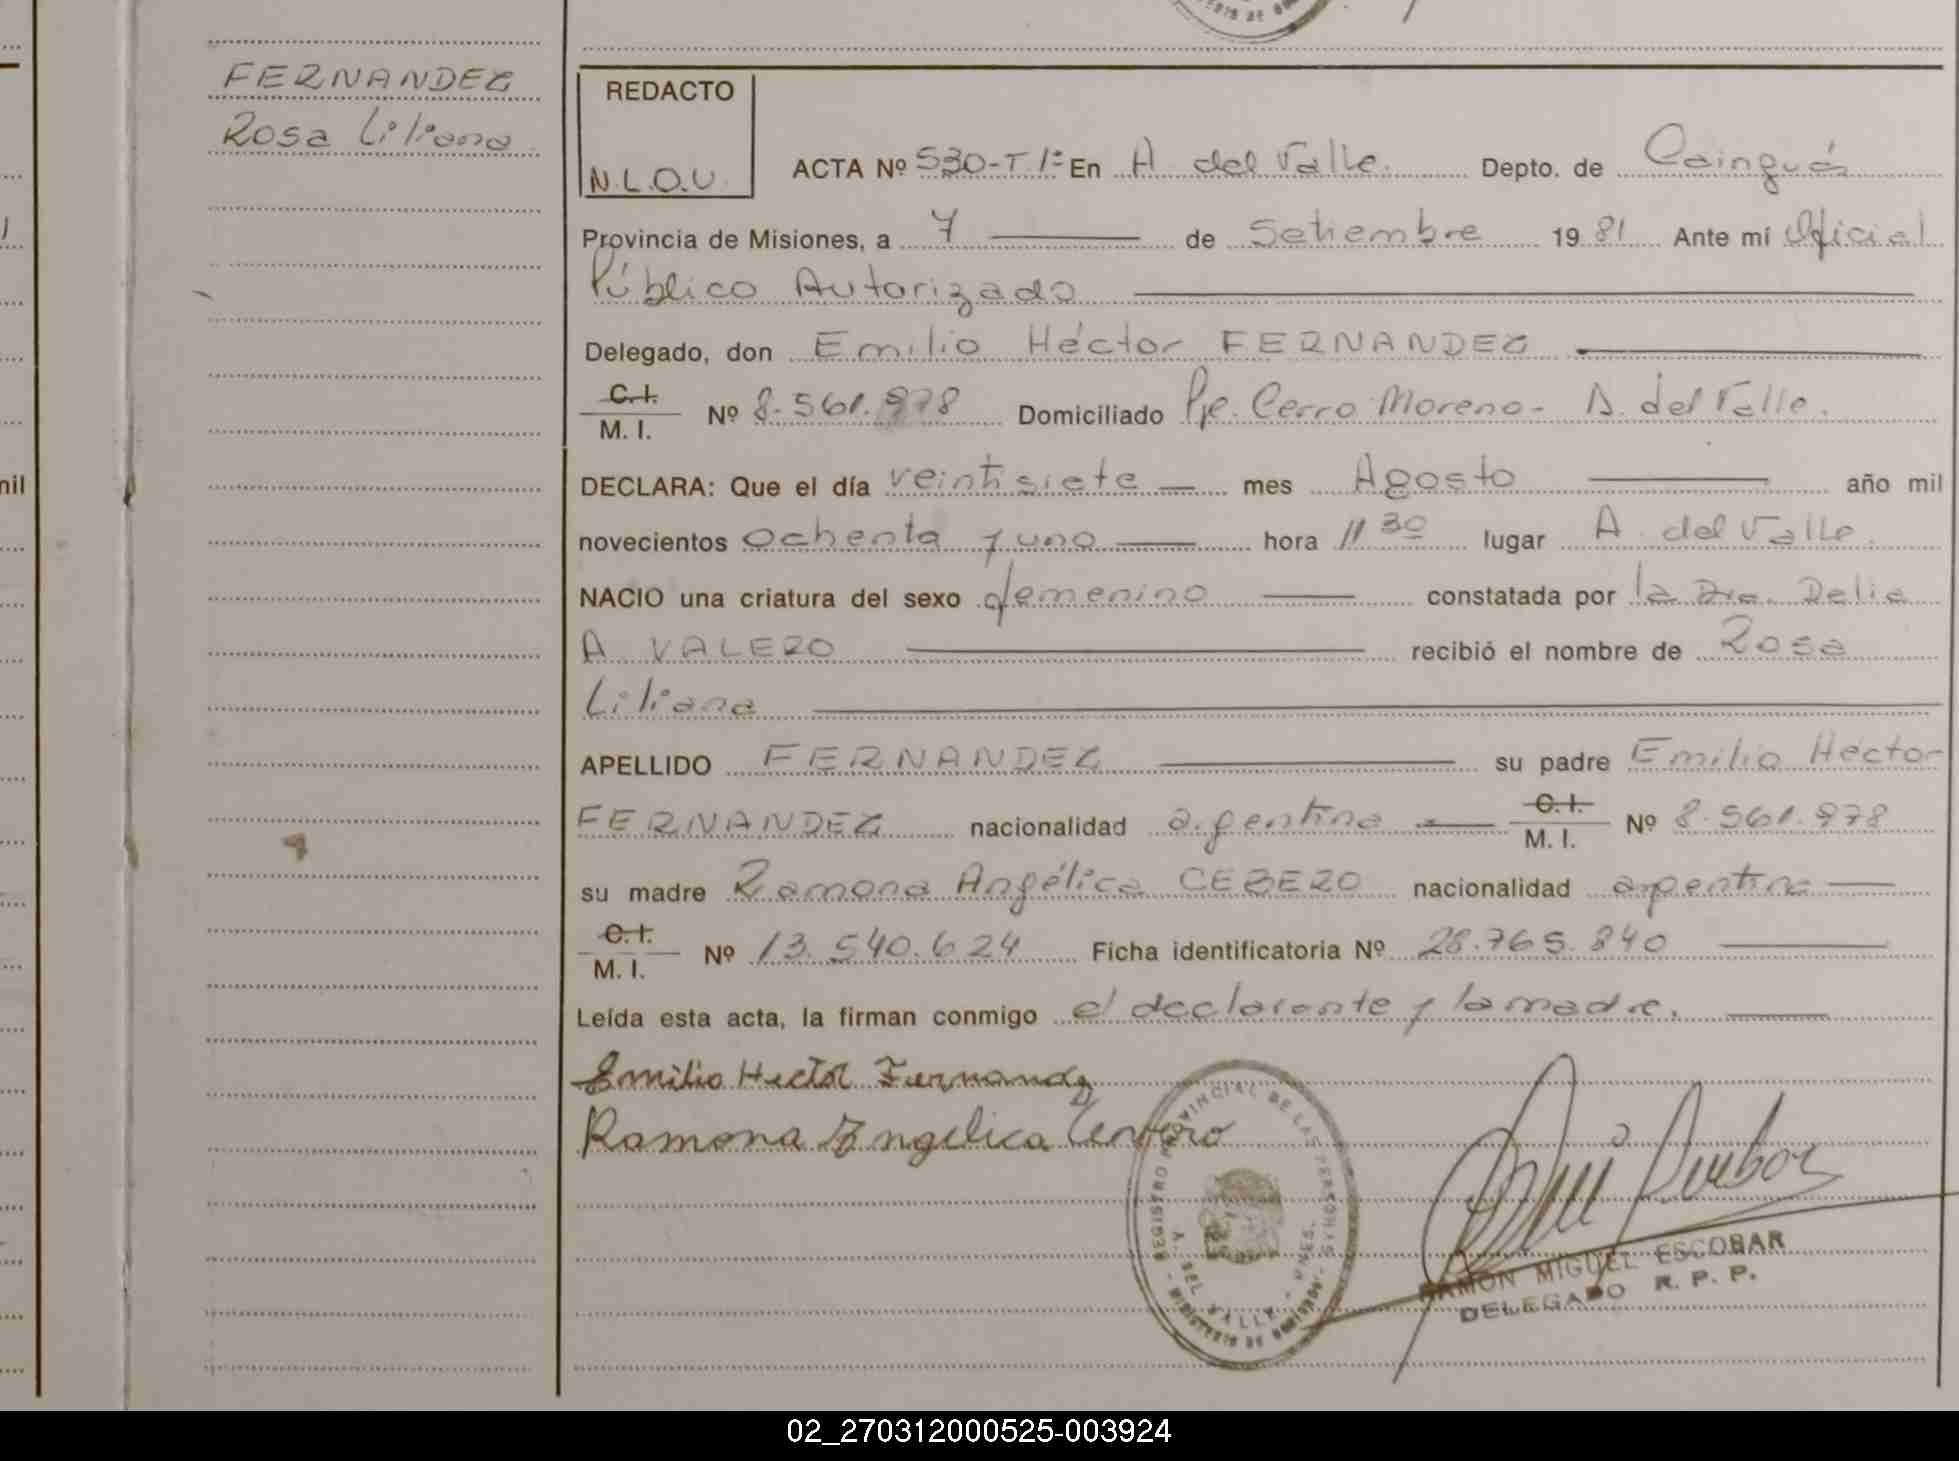 FERNANDEZ
Rosa Liliana
REDACTO
N.L.O.U.
ACTA Nº 530-T 1º En A del Valle. Depto. de Cainguás
Provincia de Misiones, a 7 de Setiembre 1981 Ante mí Oficial
Público Autorizado
Delegado, don Emilio Héctor FERNANDEZ
C.I.
M. I. Nº 8.561.978 Domiciliado Pje. Cerro Moreno - A. del Valle.
DECLARA: Que el día veintisiete mes Agosto año mil
novecientos ochenta y uno hora 11 30 lugar A. del Valle.
NACIO una criatura del sexo femenino constatada por la Dra. Delia
A VALERO recibió el nombre de Rosa
Liliana
APELLIDO FERNANDEZ su padre Emilio Héctor
FERNANDEZ nacionalidad argentina C.I. M. I. Nº 8.561.978
su madre Ramona Angélica CEBERO nacionalidad argentina
C.I.
M. I. Nº 13.540.624 Ficha identificatoria Nº 28.765.840
Leída esta acta, la firman conmigo el declarante y la madre.
Emilio Hector Fernandez
Ramona Angelica
REGISTRO PROVINCIAL DE LAS PERSONAS
A. DEL VALLE - MNES.
MINISTERIO DE GOBIERNO
RAMON MIGUEL ESCOBAR
DELEGADO R. P. P.
nil
02_270312000525-003924